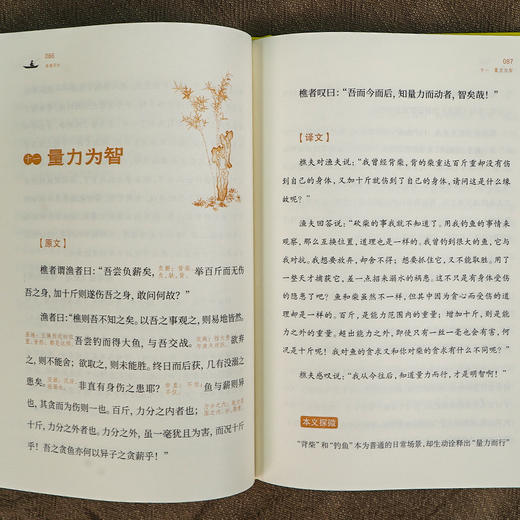 086
十一 量力为智
【原文】
樵者谓渔者曰：“吾尝负薪矣，举百斤而无伤
吾之身，加十斤则遂伤吾之身，敢问何故？”
渔者曰：“樵则吾不知之矣。以吾之事观之，则易地皆然。
吾尝钓而得大鱼，与吾交战。欲弃
之，则不能舍；欲取之，则未能胜。终日而后获，几有没溺之
患矣。非直有身伤之患耶？鱼与薪则异
也，其贪而为伤则一也。百斤，力分之内者也；
十斤，力分之外者也。力分之外，虽一毫犹且为害，而况十斤
乎！吾之贪鱼亦何以异子之贪薪乎！”
087
十一 量力为智
樵者叹曰：“吾而今而后，知量力而动者，智矣哉！”
【译文】
樵夫对渔夫说：“我曾经背柴，背的柴重达百斤重却没有伤
到自己的身体，又加十斤就伤到了自己的身体，请问这是什么缘
故呢？”
渔夫回答说：“砍柴的事我就不知道了。用我钓鱼的事情来
观察，那么互换位置，道理也是一样的。我曾钓到很大的鱼，它与
我对抗。我想要放弃，却舍不得；想要抓住它，又不能取胜。用了
一整天才捕获它，差一点招来溺水的祸患。这不只是有身体受伤
的隐患了吧？鱼和柴虽然不一样，但其中因为贪心而受伤的道
理却是一样的。百斤，是能力范围内的重量；增加十斤，则是能
力之外的重量。超出能力之外，即使只有一丝一毫也会有害，何
况是十斤呢！我对鱼的贪求又和你对柴的贪求有什么不同呢？”
樵夫感叹说：“我从今往后，知道量力而行，才是明智啊！”
本文探微
“背柴”和“钓鱼”本为普通的日常场景，却生动诠释出“量力而行”